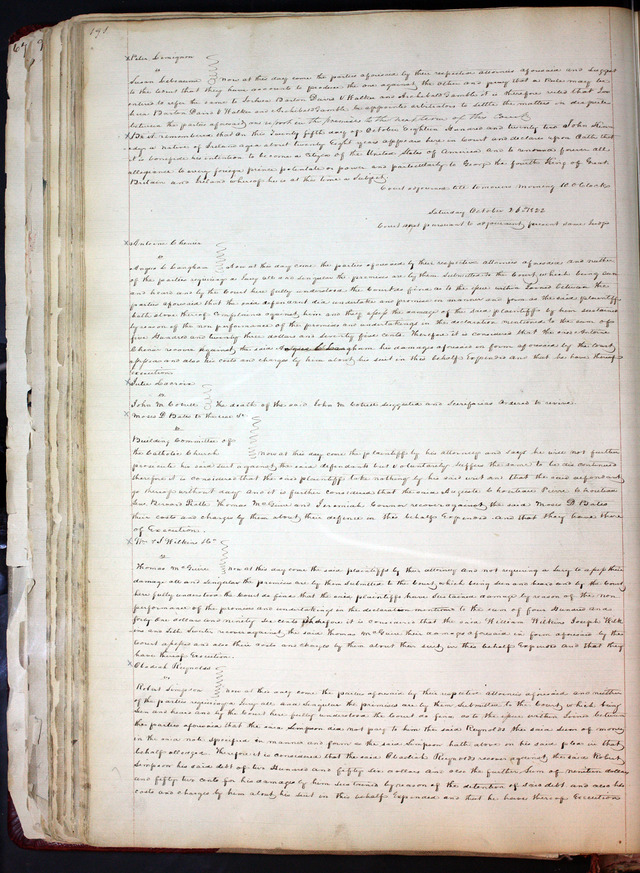 191
Peter Lemignon
vs
Susan Labeaume now at this day come the parties aforesaid by their respective attornies aforesaid and suggest
to the Court that they have accounts to produce the one against the other and pray that a Rule may be
entered to refer the same to Joshua Barton David V Walker and Archibald Gamble it is therefore ruled that Joshua
Barton David V Walker and Archibald Gamble be appointed arbitrators to settle the matters in dispute
between the parties aforesaid & report in the premises to the next term of this Court
Be it remembered that on this Twenty fifth day of October Eighteen Hundred and twenty two John
a native of Ireland aged about twenty Eight years appears here in Court and declares upon Oath that
it is bonafide his intention to become a citizen of the United States of America and to renounce forever all
allegiance to every foreign prince potentate or power and particularly to George the fourth King of Great
Britain and Ireland whereof he is at this time a Subject
Court adjourned till tomorrow morning O'Clock
Saturday October 26th 1822
Court met pursuant to adjournment present same Judge
Antoine Chenie
vs
Angus L Langham now at this day come the parties aforesaid by their respective attornies aforesaid and neither
of the parties requiring a Jury all and singular the premises are by them submitted to the Court, which being seen
and heard and by the Court here fully understood the Court do find as to the issue within Joined between the
parties aforesaid that the said defendant did undertake and promise in manner and form as the said plaintiff
hath above thereof Complained against him and they assess the damage of the said plaintiff by him sustained
by reason of the non performance of the promises and undertakings in the declaration mentioned to the sum of
five Hundred and twenty three dollars and seventy five cents Therefore it is considered that the said Antoine
Chenie recover against the said Angus L Langham his damages aforesaid in form aforesaid by the Court
assessed and also his costs and charges by him about his suit in this behalf Expended and that he have thereof
Execution
Julie Lacroix
vs
John M Cotelle The death of the said John M Cotelle suggested and Scirefacias Ordered to revive
Moses D Bates to the use &c
vs
Building Committee of
the Catholic Church now at this day come the plaintiff by his attorney and says he will not further
prosecute his said suit against the said defendants but Voluntarily suffers the same to be discontinued
therefore it is considered that the said plaintiff take nothing by his said writ and that the said defendants
go thereof without day And it is further considered that the said Auguste Chouteau Pierre Chouteau
Senr Bernard Pratte Thomas McGuire and Jeremiah Connor recover against the said Moses D Bates
their costs and charges by them about their defence in this behalf Expended And that they have there
of Execution.
Wm & J Wilkins &c
vs
Thomas McGuire now at this day come the said plaintiffs by their attorney and not requiring a Jury to assess their
damage all and Singular the premises are by them Submitted to the Court, which being seen and heard and by the Court
here fully understood the Court do find that the said plaintiffs have sustained damage by reason of the non
performance of the promises and undertakings in the declaration mention to the sum of four Hundred and
forty one dollars and ninety six cents therefore it is considered that the said William Wilkins Joseph Wilk
ins and recover against the said Thomas McGuire their damages aforesaid in form aforesaid by the
Court assessed and also their costs and charges by them about their suit in this behalf Expended and that they
have thereof Execution.
Obadiah Reynolds
vs
Robert Simpson now at this day come the parties aforesaid by their respective attornies aforesaid and neither
of the parties requiring a Jury all and Singular the premises are by them Submitted to the Court, which being
seen and heard and by the Court here fully understood the Court do find as to the issue within Joined between
the parties aforesaid that the said Simpson did not pay to him the said Reynolds the said Sum of money
in the said note specified in manner and form as the said Simpson hath above in his said plea in that
behalf alledged Therefore it is considered that the said Obadiah Reynolds recover against the said Robert
Simpson his said debt of two Hundred and fifty six dollars and also the further Sum of nineteen dollars
and fifty two cents for his damages by him sustained by reason of the detention of said debt and also his
costs and charges by him about his suit in this behalf Expended and that he have thereof Execution